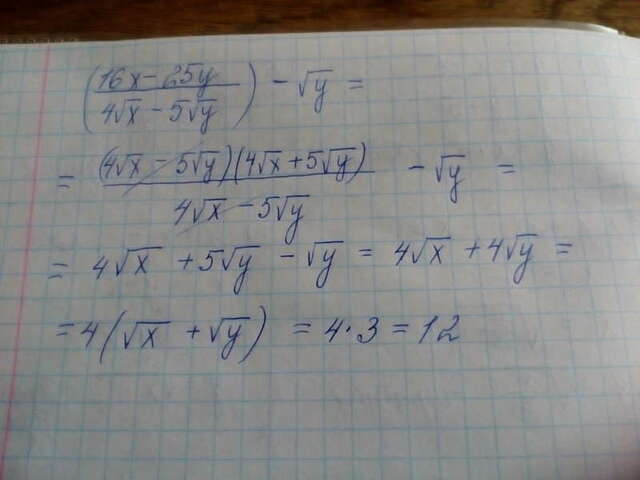 (16x-25y / 4√x - 5√y) - √y =
= (4√x - 5√y)(4√x + 5√y) / 4√x - 5√y - √y =
= 4√x + 5√y - √y = 4√x + 4√y =
= 4(√x + √y) = 4·3 = 12